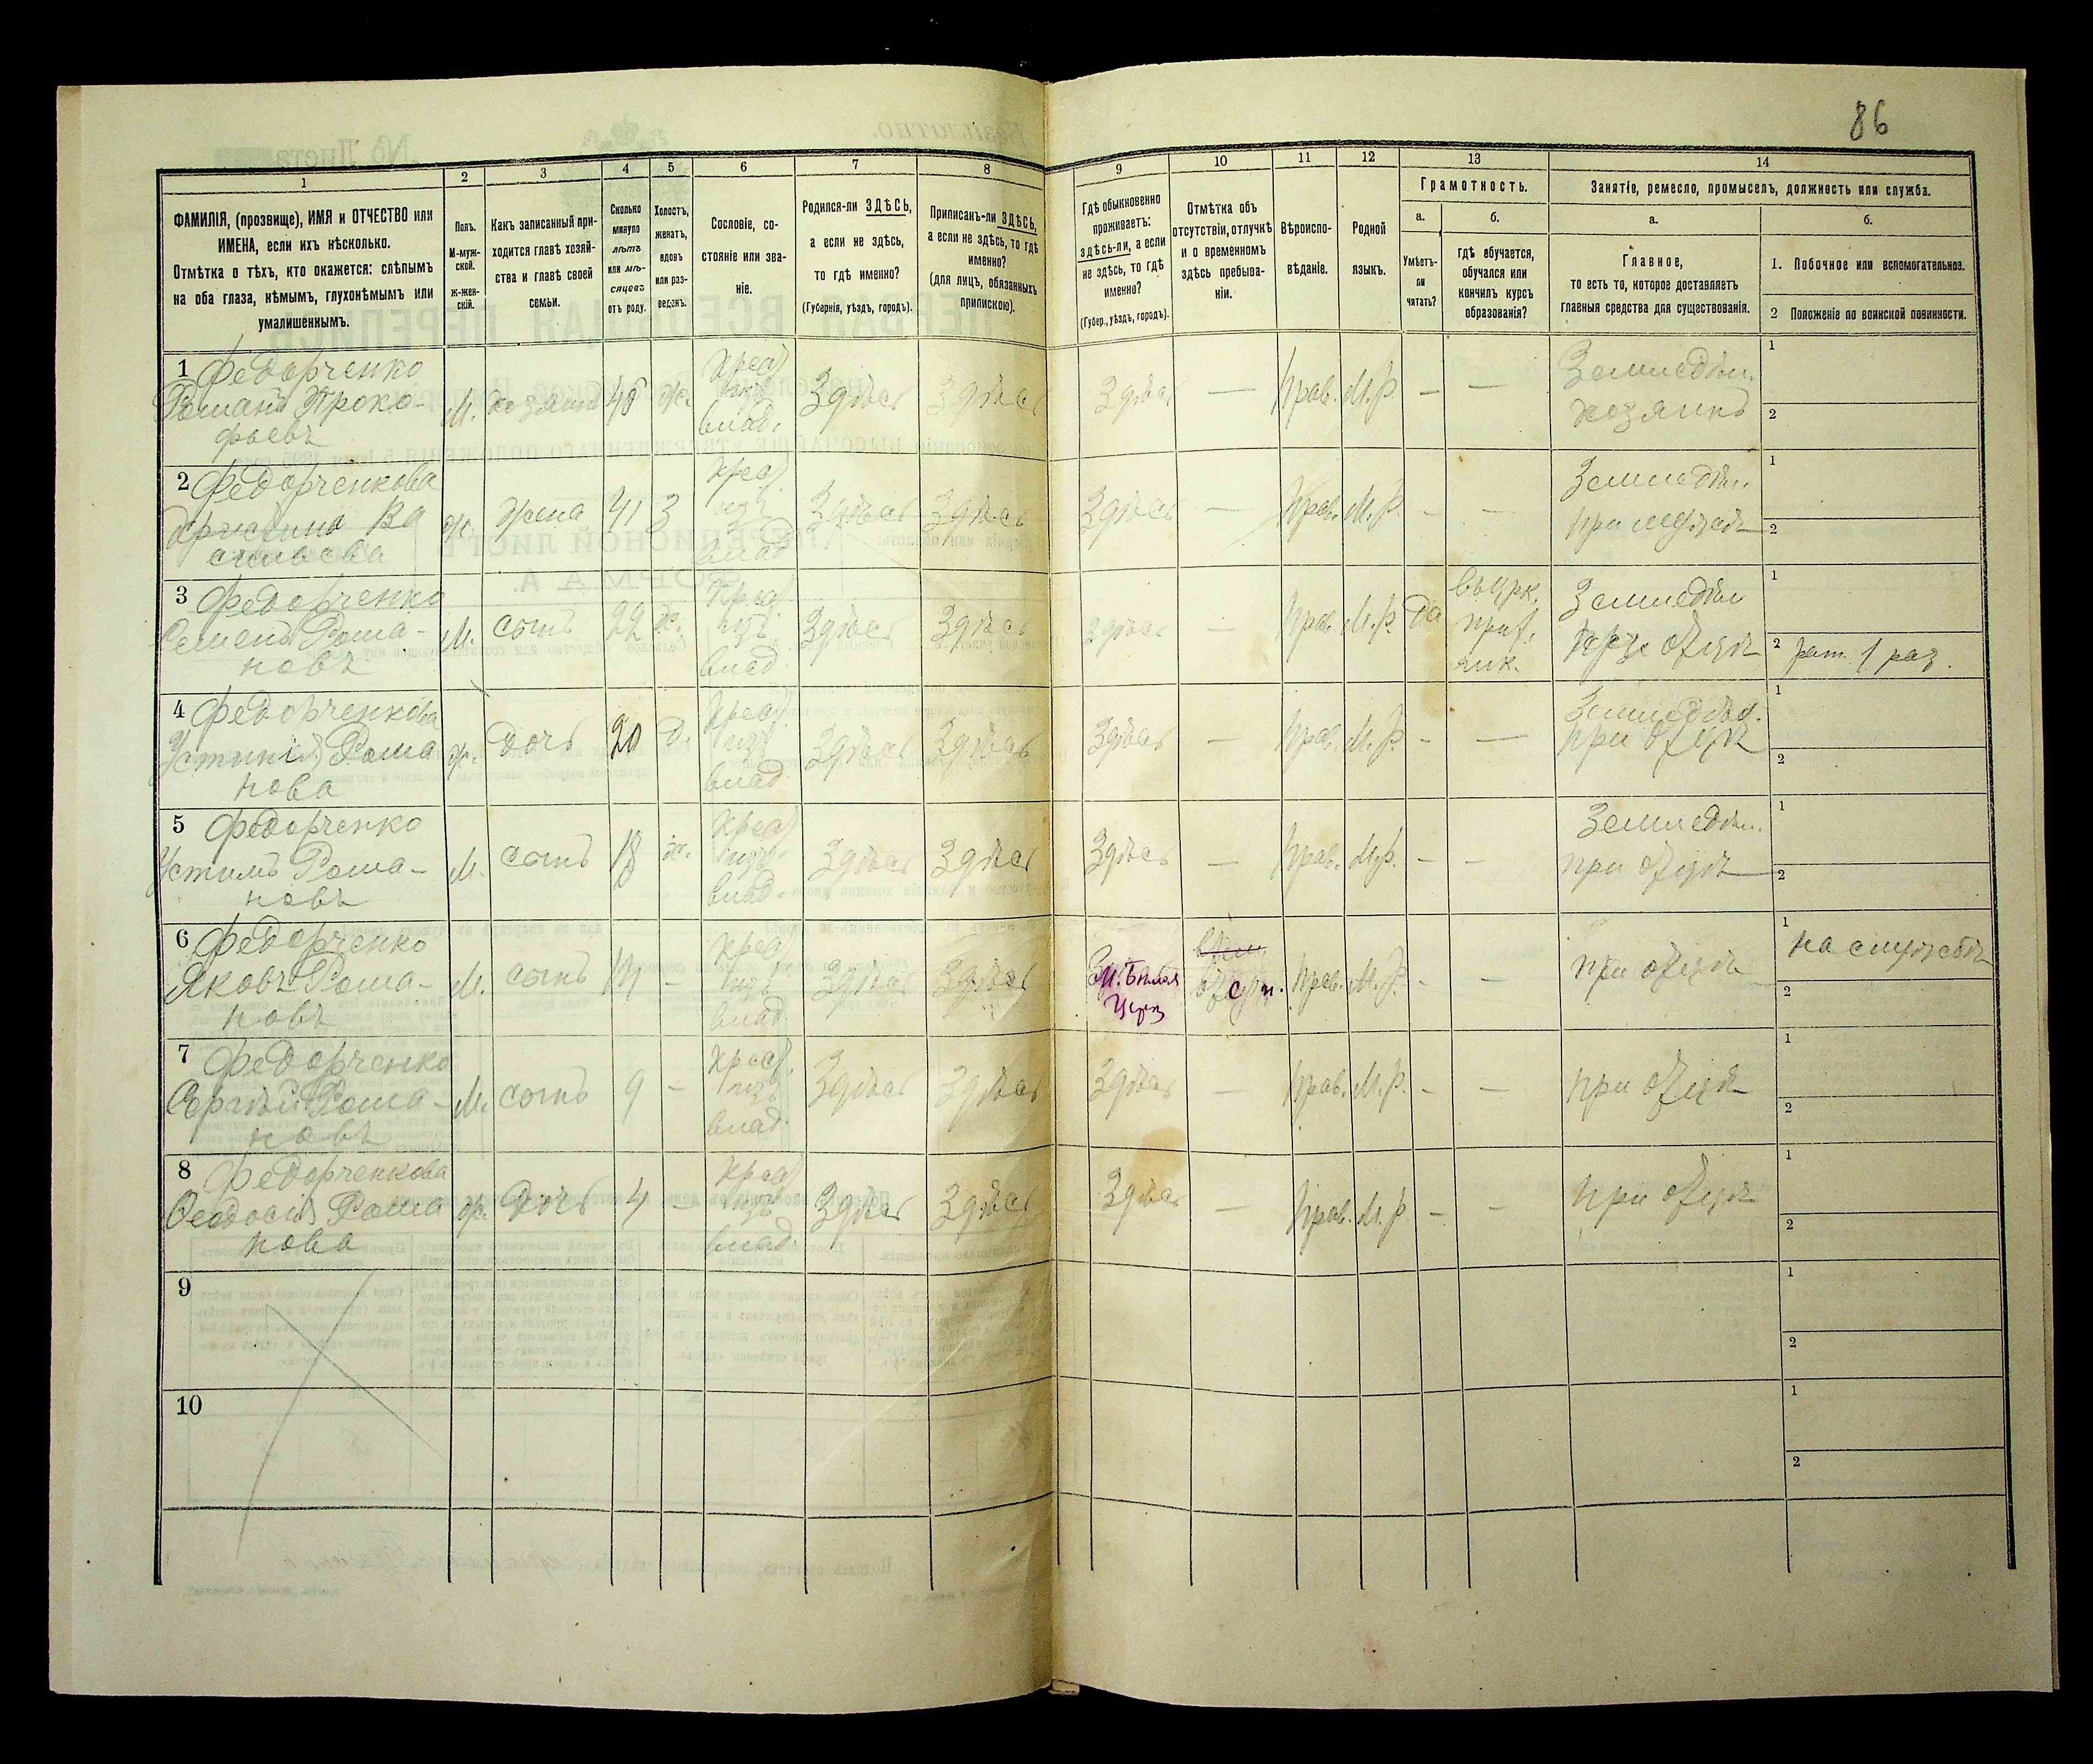 86
1
2
3
4
5
6
7
8
9
10
11
12
13
14
ФАМИЛІЯ, (прозвище), ИМЯ и ОТЧЕСТВО или
ИМЕНА, если ихъ нѣсколько.
Отмѣтка о тѣхъ, кто окажется: слѣпымъ
на оба глаза, нѣмымъ, глухонѣмымъ или
умалишеннымъ.
Полъ.
М-муж-
ской.
Ж-жен-
скій.
Какъ записанный при-
ходится главѣ хозяй-
ства и главѣ своей
семьи.
Сколько
минуло
лѣтъ
или мѣ-
сяцевъ
отъ роду.
Холостъ,
женатъ,
вдовъ
или раз-
веденъ.
Сословіе, со-
стояніе или зва-
ніе.
Родился-ли ЗДѢСЬ,
а если не здѣсь,
то гдѣ именно?
(Губернія, уѣздъ, городъ).
Приписанъ-ли ЗДѢСЬ,
а если не здѣсь, то гдѣ
именно?
(для лицъ, обязанныхъ
припискою).
Гдѣ обыкновенно
проживаетъ:
здѣсь-ли, а если
не здѣсь, то гдѣ
именно?
(Губер., уѣздъ, городъ).
Отмѣтка объ
отсутствіи, отлучкѣ
и о временномъ
здѣсь пребыва-
ніи.
Вѣроиспо-
вѣданіе.
Родной
языкъ.
Грамотность.
а.
Умѣетъ-
ли
читать?
б.
гдѣ обучается,
обучался или
кончилъ курсъ
образованія?
Занятіе, ремесло, промыселъ, должность или служба.
а.
Главное,
то есть то, которое доставляетъ
главныя средства для существованія.
б.
1. Побочное или вспомогательное.
2 Положеніе по воинской повинности.
1 Федорченко
Романъ Проко-
фьевъ
М. хозяинъ ж.
Крест.
изъ
влад.
Здѣсь Здѣсь Здѣсь — Прав. М.р. — —
Земледѣл.
хозяинъ
1
2
2 Федорченкова
Ва
сильева
ж. жена 41 З
Крест.
изъ
влад.
Здѣсь Здѣсь Здѣсь — Прав. М.р. — —
Земледѣл.
при мужѣ
1
2
3 Федорченко
Семенъ Рома-
новъ
М. сынъ 22 ж.
Крест.
изъ
влад.
Здѣсь Здѣсь здѣсь — Прав. М.р. да
въ црк.
прих.
Земледѣл
при отцѣ
1
2 рат. 1 раз.
4 Федорченкова
Устинія Рома
нова
ж. дочь 20 д.
Крест.
изъ
влад.
Здѣсь Здѣсь Здѣсь — Прав. М.р. — —
Земледѣл.
при отцѣ
1
2
5 Федорченко
Устимъ Рома-
новъ
М. сынъ 18 ж.
Крест.
изъ
влад.
Здѣсь Здѣсь Здѣсь — Прав. М.р. — —
Земледѣл.
при отцѣ
1
2
6 Федорченко
Яковъ Рома-
новъ
М. сынъ 14 —
Крест.
изъ
влад.
Здѣсь Здѣсь
М. Бѣлая
Церк
Прав. М.р. — —
при отцѣ
1 на службѣ
2
7 Федорченко
Сергѣй Рома-
новъ
М. сынъ 9 —
Крест.
изъ
влад.
Здѣсь Здѣсь Здѣсь — Прав. М.р. — —
при отцѣ
1
2
8 Федорченкова
Феодосія Рома
нова
ж. дочь 4 —
Крест.
изъ
влад.
Здѣсь Здѣсь Здѣсь — Прав. М.р. — —
при отцѣ
1
2
9
1
2
10
1
2